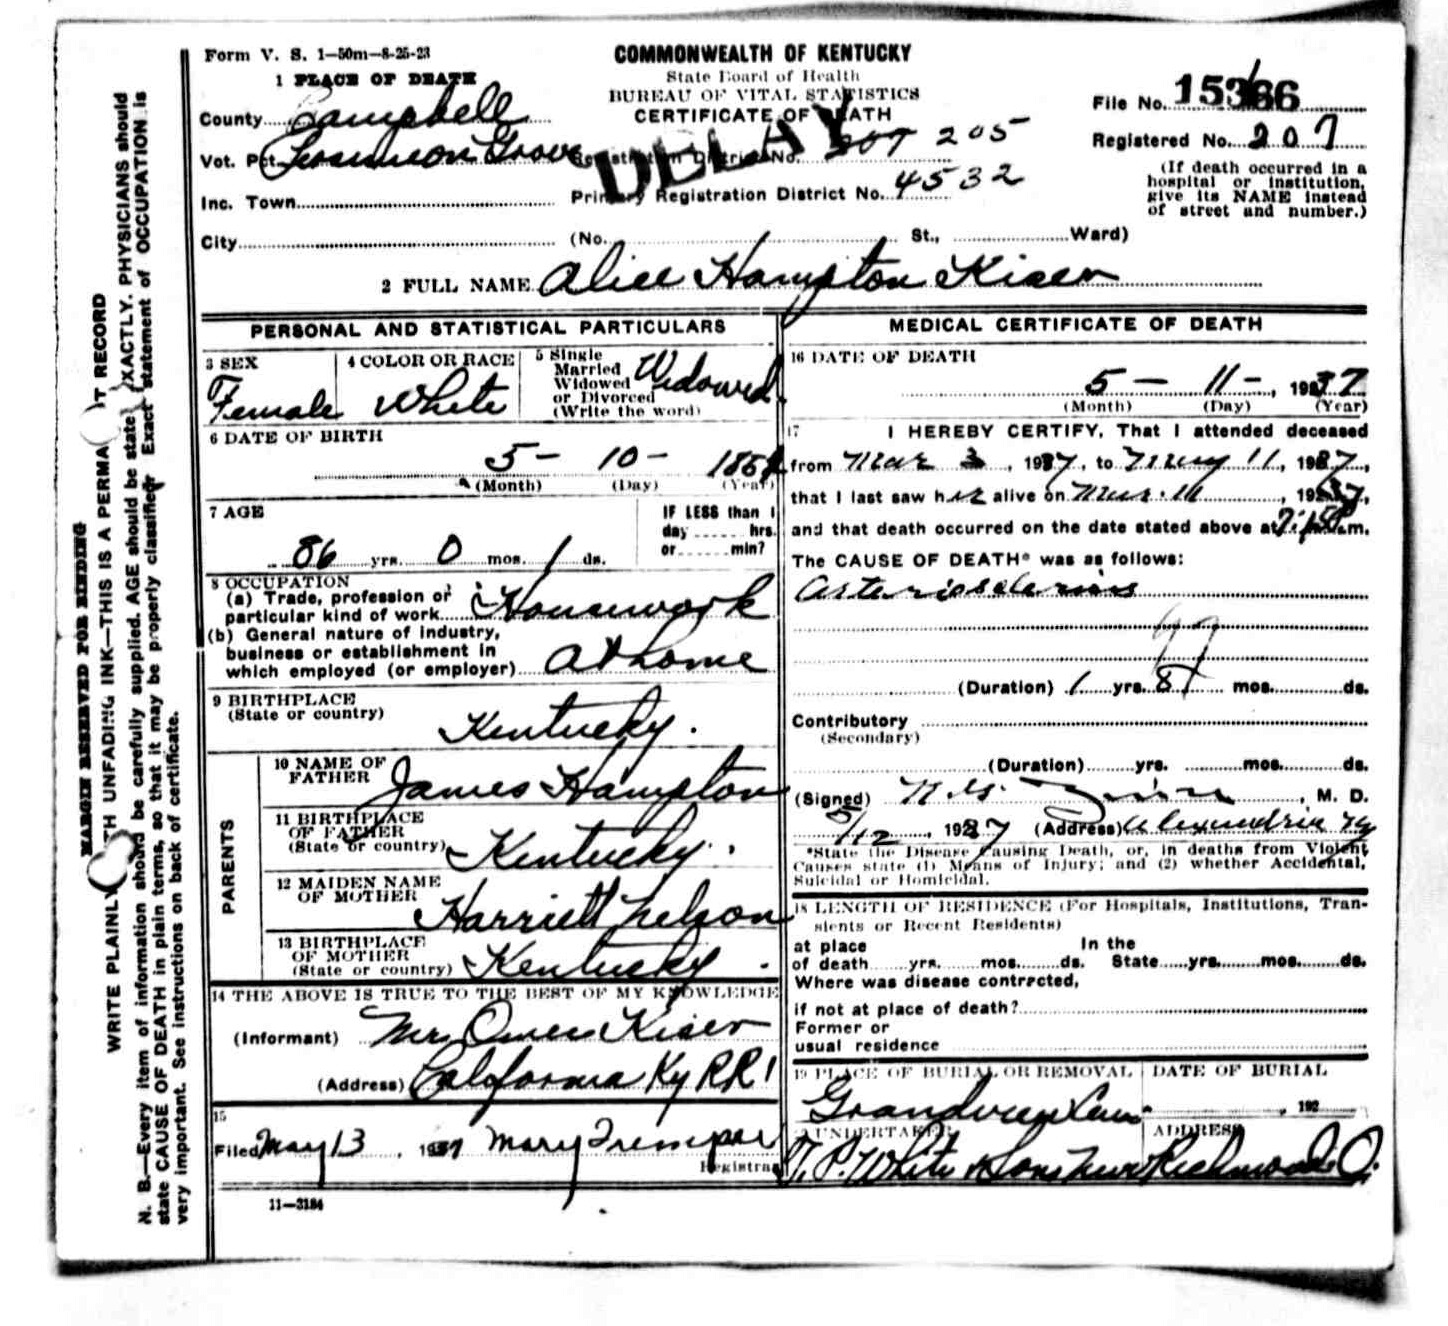 Form V. S. 1-50m-8-25-23
COMMONWEALTH OF KENTUCKY
State Board of Health
BUREAU OF VITAL STATISTICS
CERTIFICATE OF DEATH
DELAY
File No. 15366
Registered No. 207
(If death occurred in a hospital or institution, give its NAME instead of street and number.)
1 PLACE OF DEATH
County Campbell
Vot. Pct. Grove
Registration District No. 207 205
Inc. Town
Primary Registration District No. 4532
City (No. St., Ward)
2 FULL NAME Alice Hampton Kiser
PERSONAL AND STATISTICAL PARTICULARS
3 SEX Female
4 COLOR OR RACE White
5 Single Married Widowed or Divorced (Write the word) Widowed
6 DATE OF BIRTH
5- 10- 185
(Month) (Day) (Year)
7 AGE
86 yrs. 0 mos. 1 ds.
IF LESS than 1 day hrs. or min?
8 OCCUPATION
(a) Trade, profession or particular kind of work Housework
(b) General nature of industry, business or establishment in which employed (or employer) at home
9 BIRTHPLACE
(State or country)
Kentucky.
PARENTS
10 NAME OF FATHER James Hampton
11 BIRTHPLACE OF FATHER (State or country) Kentucky.
12 MAIDEN NAME OF MOTHER Harriett Nelson
13 BIRTHPLACE OF MOTHER (State or country) Kentucky.
14 THE ABOVE IS TRUE TO THE BEST OF MY KNOWLEDGE
(Informant) Owen Kiser
(Address) California Ky RR 1
15
Filed May 13, 1937 Mary
Registrar
11-3184
MEDICAL CERTIFICATE OF DEATH
16 DATE OF DEATH
5- 11-, 1937
(Month) (Day) (Year)
17 I HEREBY CERTIFY, That I attended deceased
from Mar 3, 1937, to May 11, 1937,
that I last saw her alive on 11, 1937,
and that death occurred on the date stated above at m.
The CAUSE OF DEATH* was as follows:
arteriosclerosis
97
(Duration) 1 yrs. 8 mos. ds.
Contributory
(Secondary)
(Duration) yrs. mos. ds.
(Signed) , M. D.
5/12, 1937 (Address) Alexandria Ky
*State the Disease Causing Death, or, in deaths from Violent Causes state (1) Means of Injury; and (2) whether Accidental, Suicidal or Homicidal.
18 LENGTH OF RESIDENCE (For Hospitals, Institutions, Transients or Recent Residents)
at place of death yrs. mos. ds. In the State yrs. mos. ds.
Where was disease contracted,
if not at place of death?
Former or
usual residence
19 PLACE OF BURIAL OR REMOVAL DATE OF BURIAL
Grandview Cem , 192
20 UNDERTAKER ADDRESS
T. P. White & Sons New Richmond O.
MARGIN RESERVED FOR BINDING
WRITE PLAINLY WITH UNFADING INK—THIS IS A PERMANENT RECORD
N. B.—Every item of information should be carefully supplied. AGE should be stated EXACTLY. PHYSICIANS should
state CAUSE OF DEATH in plain terms, so that it may be properly classified. Exact statement of OCCUPATION is
very important. See instructions on back of certificate.